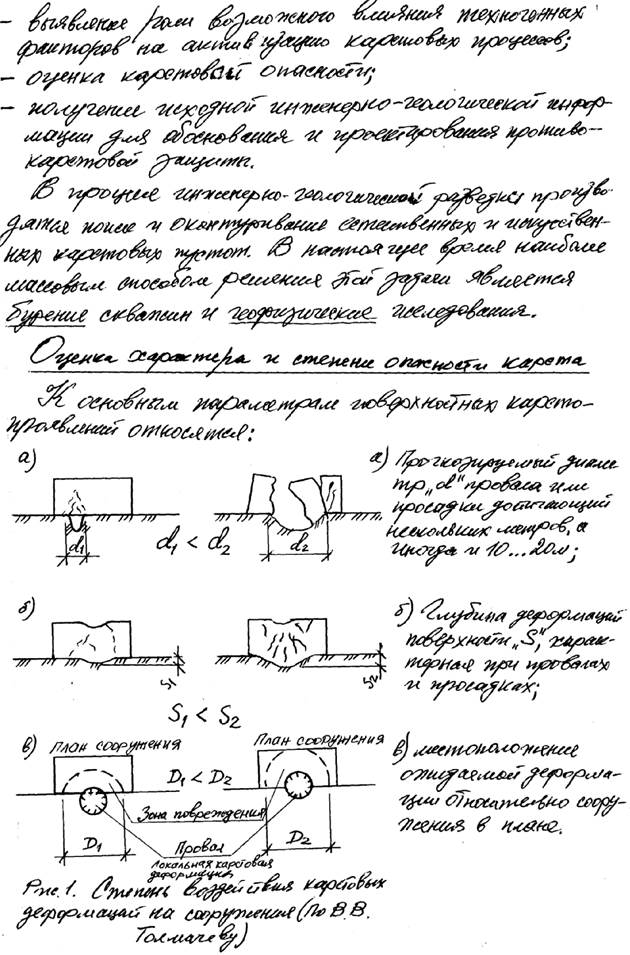 – выявление роли возможного влияния техногенных
факторов на активизацию карстовых процессов;
– оценка карстовой опасности;
– получение исходной инженерно-геологической инфор-
мации для обоснования и проектирования противо-
карстовой защиты.
В процессе инженерно-геологической разведки произво-
дятся поиск и оконтуривание естественных и искусствен-
ных карстовых пустот. В настоящее время наиболее
массовым способом решения этой задачи является
бурение скважин и геофизические исследования.
Оценка характера и степени опасности карста
К основным параметрам поверхностных карсто-
проявлений относятся:
а)
d1
d1 < d2
d2
а) Прогнозируемый диаме
тр „d" провала или
просадки достигающий
нескольких метров, а
иногда и 10...20м;
б)
S1
S2
S1 < S2
б) Глубина деформаций
поверхности „S", харак-
терная при провалах
и просадках;
в)
План сооружения
План сооружения
D1 < D2
Зона повреждения
D1
Провал
D2
Локальная карстовая
деформация
в) местоположение
ожидаемой деформа-
ции относительно соору-
жения в плане.
Рис.1. Степень воздействия карстовых
деформаций на сооружения (По В.В.
Толмачеву)